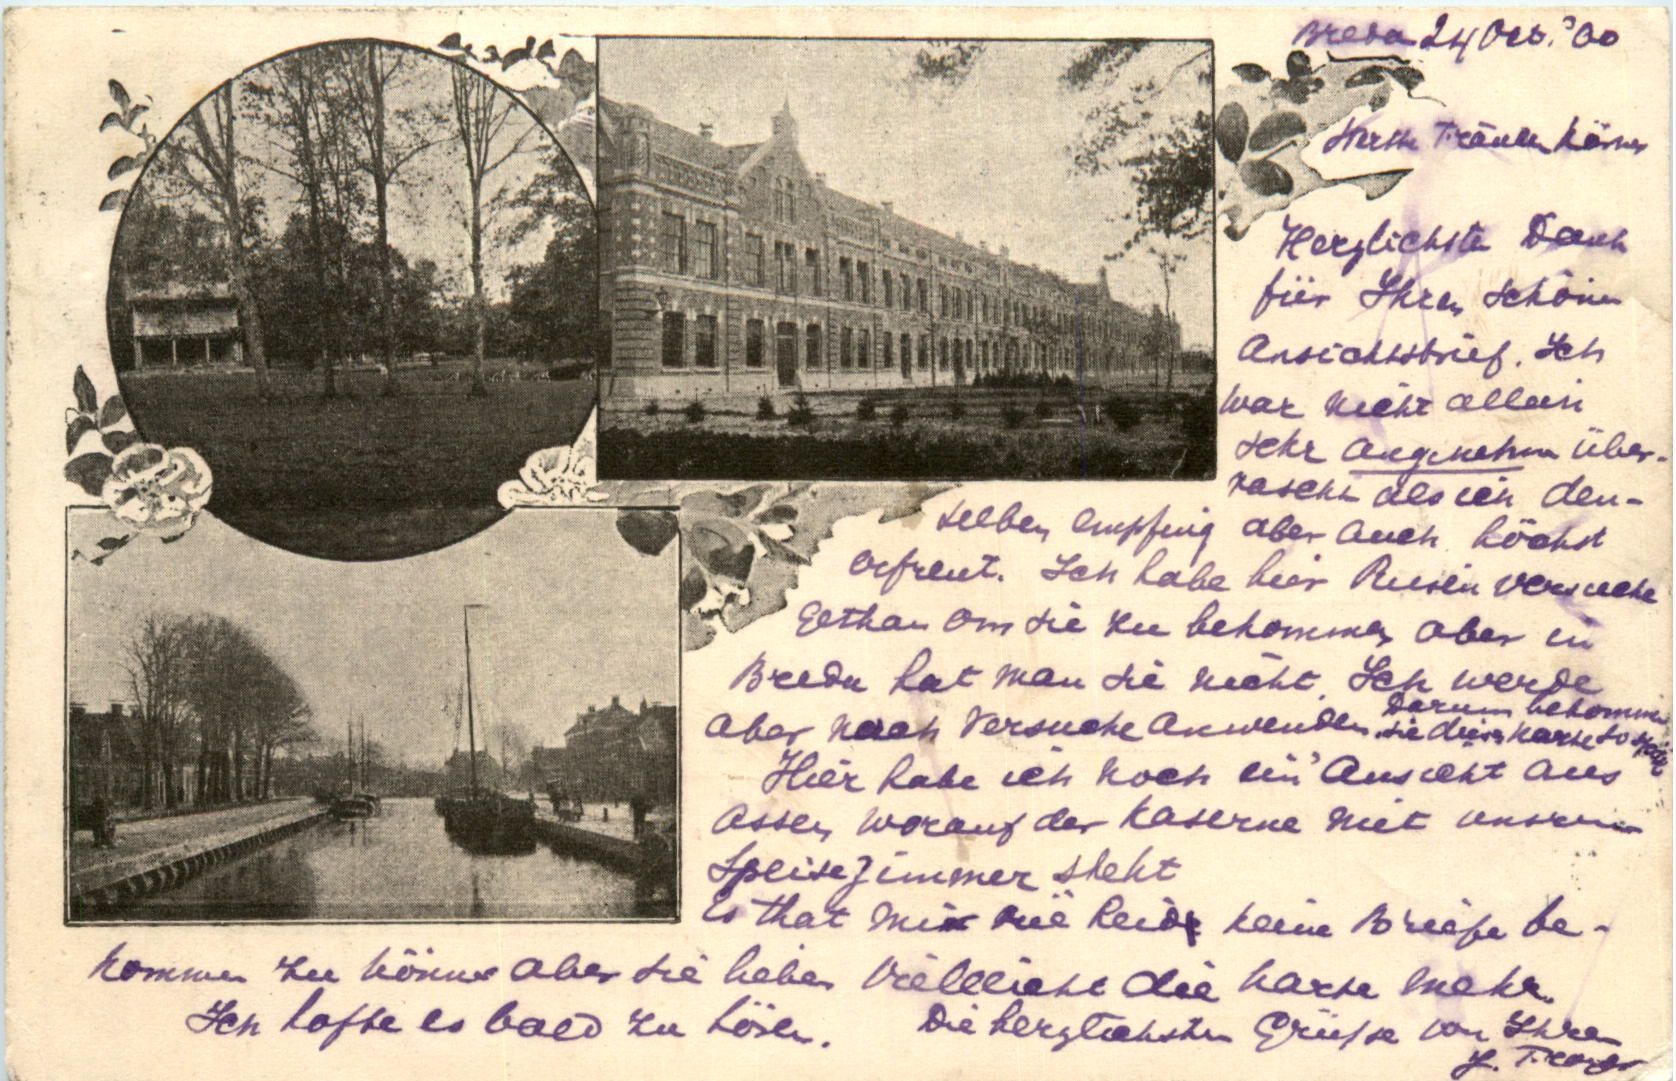 Breda 24 Oct. '00
Werthe Fräulein Körner
Herzlichsten Dank
für Ihren schönen
Ansichtsbrief. Ich
war nicht allein
sehr angenehm über-
rascht als ich den-
selben empfing aber auch höchst
erfreut. Ich habe hier Riesen versuche
gethan om sie zu bekommen aber in
Breda hat man sie nicht. Ich werde
aber noch Versuche anwenden. Darum bekommen
sie diese Karte so spät
Hier habe ich noch ein Ansicht aus
Assen worauf der Kaserne mit unserm
Speisezimmer steht
Es that mir leid keine Briefe be-
kommen zu können aber sie lieben vielleicht die Karte mehr.
Ich hoffe es bald zu hören. Die herzlichsten Grüsse von Ihren